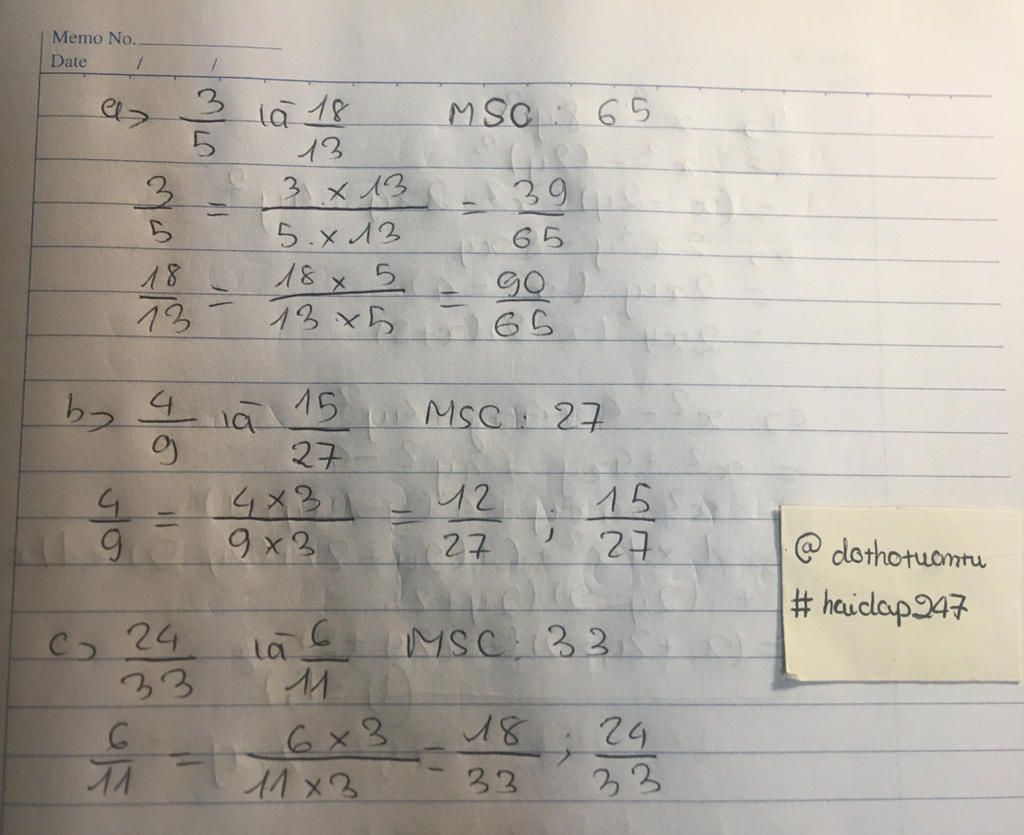 Memo No.
Date / /
a> 3/5 và 18/13 MSC : 65
3/5 = 3 × 13/5 × 13 = 39/65
18/13 = 18 × 5/13 × 5 = 90/65
b> 4/9 và 15/27 MSC : 27
4/9 = 4 × 3/9 × 3 = 12/27 ; 15/27
c> 24/33 và 6/11 MSC : 33
6/11 = 6 × 3/11 × 3 = 18/33 ; 24/33
@ dothotuantu
# haidap247